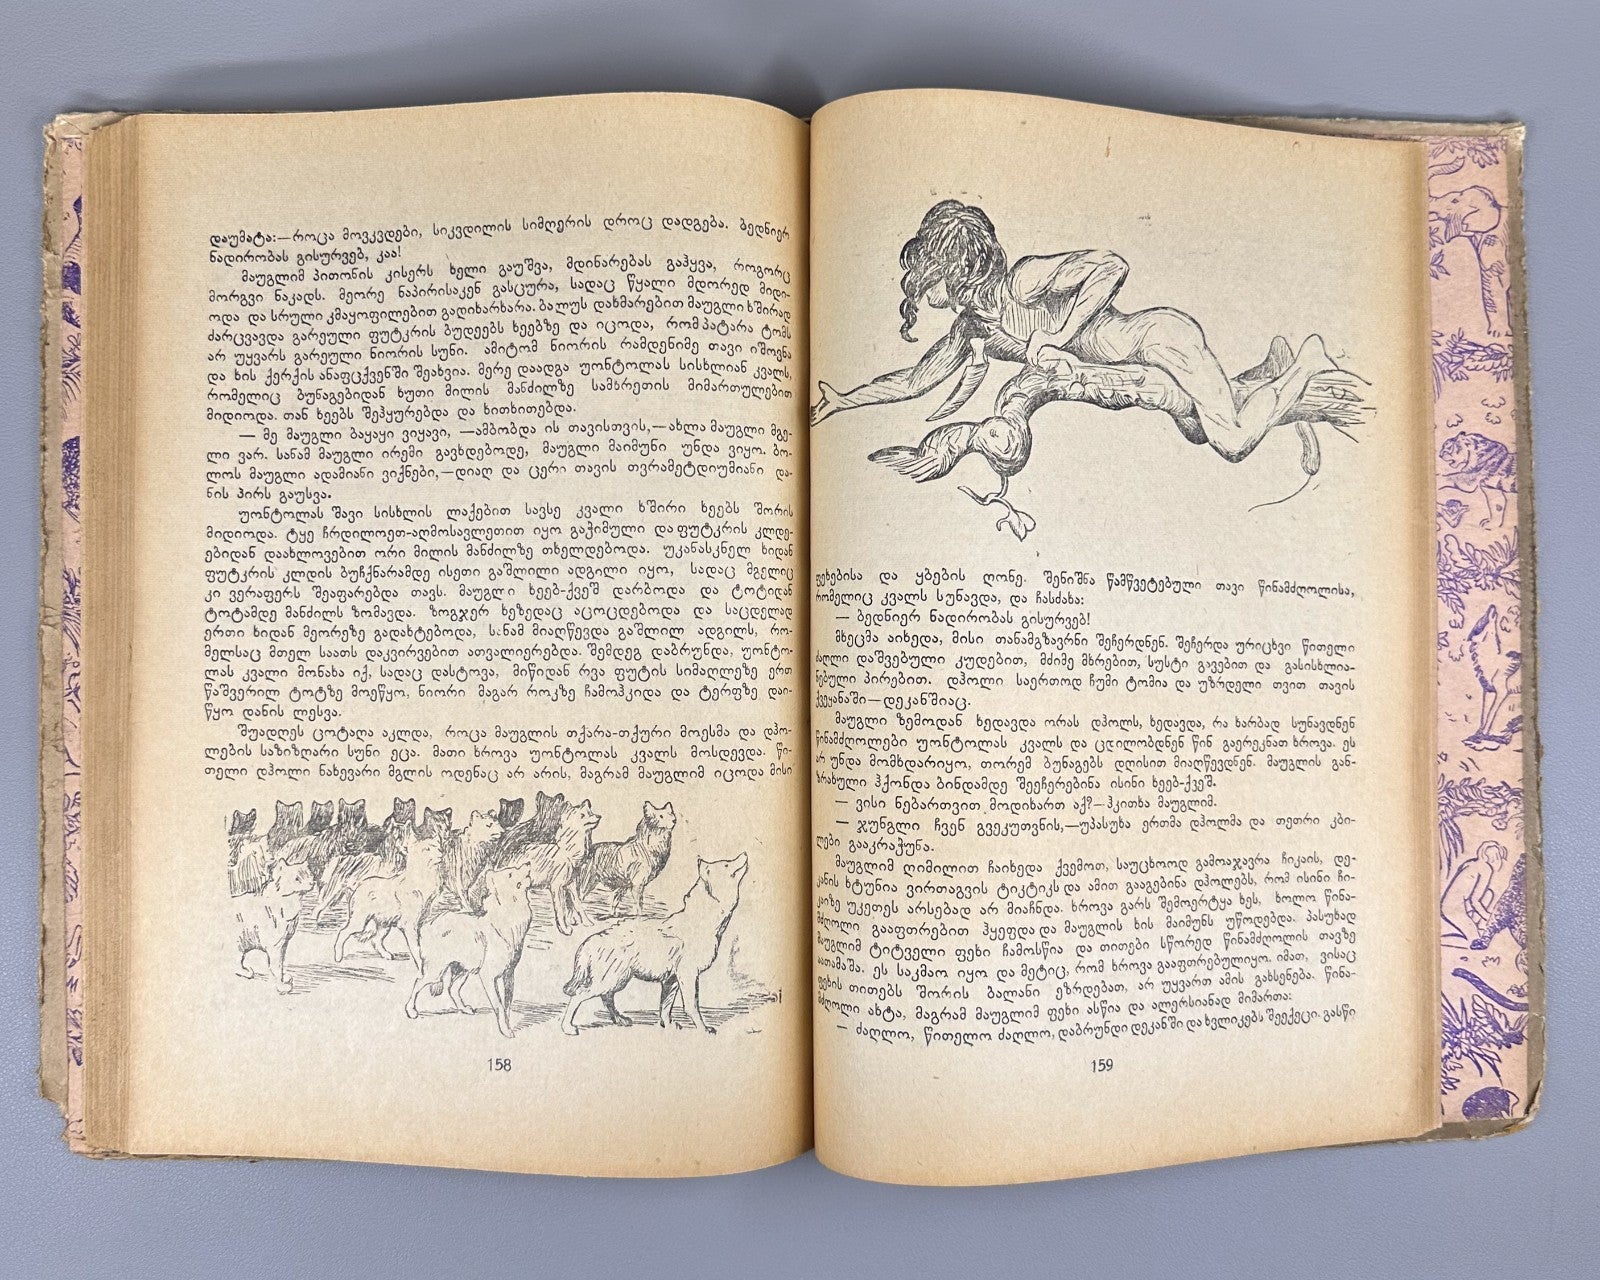 დაუმატა:—როცა მოვკვდები, სიკვდილის სიმღერის დროც დადგება. ბედნიერ
ნადირობას გისურვებ, კაა!
მაუგლიმ პითონის კისერს ხელი გაუშვა, მდინარებას გაჰყვა, როგორც
მორგვი ნაკადს. მეორე ნაპირისაკენ გასცურა, სადაც წყალი მდორედ მიდი-
ოდა და სრული კმაყოფილებით გადიხარხარა. ბალუს დახმარებით მაუგლი ხშირად
ძარცვავდა გარეული ფუტკრის ბუდეებს ხეებზე და იცოდა, რომ პატარა ტომს
არ უყვარს გარეული ნიორის სუნი. ამიტომ ნიორის რამდენიმე თავი იშოვნა
და ხის ქერქის ანაფცქვენში შეახვია. მერე დაადგა უონტოლას სისხლიან კვალს,
რომელიც ბუნაგებიდან ხუთი მილის მანძილზე სამხრეთის მიმართულებით
მიდიოდა. თან ხეებს შეჰყურებდა და ხითხითებდა.
— მე მაუგლი ბაყაყი ვიყავი, —ამბობდა ის თავისთვის,—ახლა მაუგლი მგე-
ლი ვარ. სანამ მაუგლი ირემი გავხდებოდე, მაუგლი მაიმუნი უნდა ვიყო. ბო-
ლოს მაუგლი ადამიანი ვიქნები,—დიაღ და ცერი თავის თვრამეტდიუმიანი და-
ნის პირს გაუსვა.
უონტოლას შავი სისხლის ლაქებით სავსე კვალი ხშირი ხეებს შორის
მიდიოდა. ტყე ჩრდილოეთ-აღმოსავლეთით იყო გაჭიმული და ფუტკრის კლდე-
ებიდან დაახლოვებით ორი მილის მანძილზე თხელდებოდა. უკანასკნელ ხიდან
ფუტკრის კლდის ბუჩქნარამდე ისეთი გაშლილი ადგილი იყო, სადაც მგელიც
კი ვერაფერს შეაფარებდა თავს. მაუგლი ხეებ-ქვეშ დარბოდა და ტოტიდან
ტოტამდე მანძილს ზომავდა. ზოგჯერ ხეზედაც აცოცდებოდა და საცდელად
ერთი ხიდან მეორეზე გადახტებოდა, სანამ მიაღწევდა გაშლილ ადგილს, რო-
მელსაც მთელ საათს დაკვირვებით ათვალიერებდა. შემდეგ დაბრუნდა, უონტო-
ლას კვალი მონახა იქ, სადაც დასტოვა, მიწიდან რვა ფუტის სიმაღლეზე ერთ
წაშვერილ ტოტზე მოეწყო, ნიორი მაგარ როკზე ჩამოჰკიდა და ტერფზე დაი-
წყო დანის ლესვა.
შუადღეს ცოტაღა აკლდა, როცა მაუგლის თქარა-თქური მოესმა და დჰო-
ლების საზიზღარი სუნი ეცა. მათი ხროვა უონტოლას კვალს მოსდევდა. წი-
თელი დჰოლი ნახევარი მგლის ოდენაც არ არის, მაგრამ მაუგლიმ იცოდა მისი
158
ფეხებისა და ყბების ღონე. შენიშნა წამწვეტებული თავი წინამძღოლისა,
რომელიც კვალს სუნავდა, და ჩასძახა:
— ბედნიერ ნადირობას გისურვებ!
მხეცმა აიხედა, მისი თანამგზავრნი შეჩერდნენ. შეჩერდა ურიცხვი წითელი
ძაღლი დაშვებული კუდებით, მძიმე მხრებით, სუსტი გავებით და გასისხლია-
ნებული პირებით. დჰოლი საერთოდ ჩუმი ტომია და უზრდელი თვით თავის
ქვეყანაში—დეკანშიაც.
მაუგლი ზემოდან ხედავდა ორას დჰოლს, ხედავდა, რა ხარბად სუნავდნენ
წინამძღოლები უონტოლას კვალს და ცდილობდნენ წინ გაერეკნათ ხროვა. ეს
არ უნდა მომხდარიყო, თორემ ბუნაგებს დღისით მიაღწევდნენ. მაუგლის გან-
ზრახული ჰქონდა ბინდამდე შეეჩერებინა ისინი ხეებ-ქვეშ.
— ვისი ნებართვით მოდიხართ აქ?—ჰკითხა მაუგლიმ.
— ჯუნგლი ჩვენ გვეკუთვნის,—უპასუხა ერთმა დჰოლმა და თეთრი კბი-
ლები გააკრაჭუნა.
მაუგლიმ ღიმილით ჩაიხედა ქვემოთ, საუცხოოდ გამოაჯავრა ჩიკაის, დე-
კანის ხტუნია ვირთაგვის ტიკტიკს და ამით გააგებინა დჰოლებს, რომ ისინი ჩი-
კაიზე უკეთეს არსებად არ მიაჩნდა. ხროვა გარს შემოერტყა ხეს, ხოლო წინა-
მძღოლი გააფთრებით ჰყეფდა და მაუგლის ხის მაიმუნს უწოდებდა. პასუხად
მაუგლიმ ტიტველი ფეხი ჩამოსწია და თითები სწორედ წინამძღოლის თავზე
აათამაშა. ეს საკმაო იყო და მეტიც, რომ ხროვა გააფთრებულიყო. იმათ, ვისაც
ფეხის თითებს შორის ბალანი ეზრდებათ, არ უყვართ ამის გახსენება. წინა-
მძღოლი ახტა, მაგრამ მაუგლიმ ფეხი ასწია და ალერსიანად მიმართა:
— ძაღლო, წითელო ძაღლო, დაბრუნდი დეკანში და ხვლიკებს შეექეცი. გასწი
159